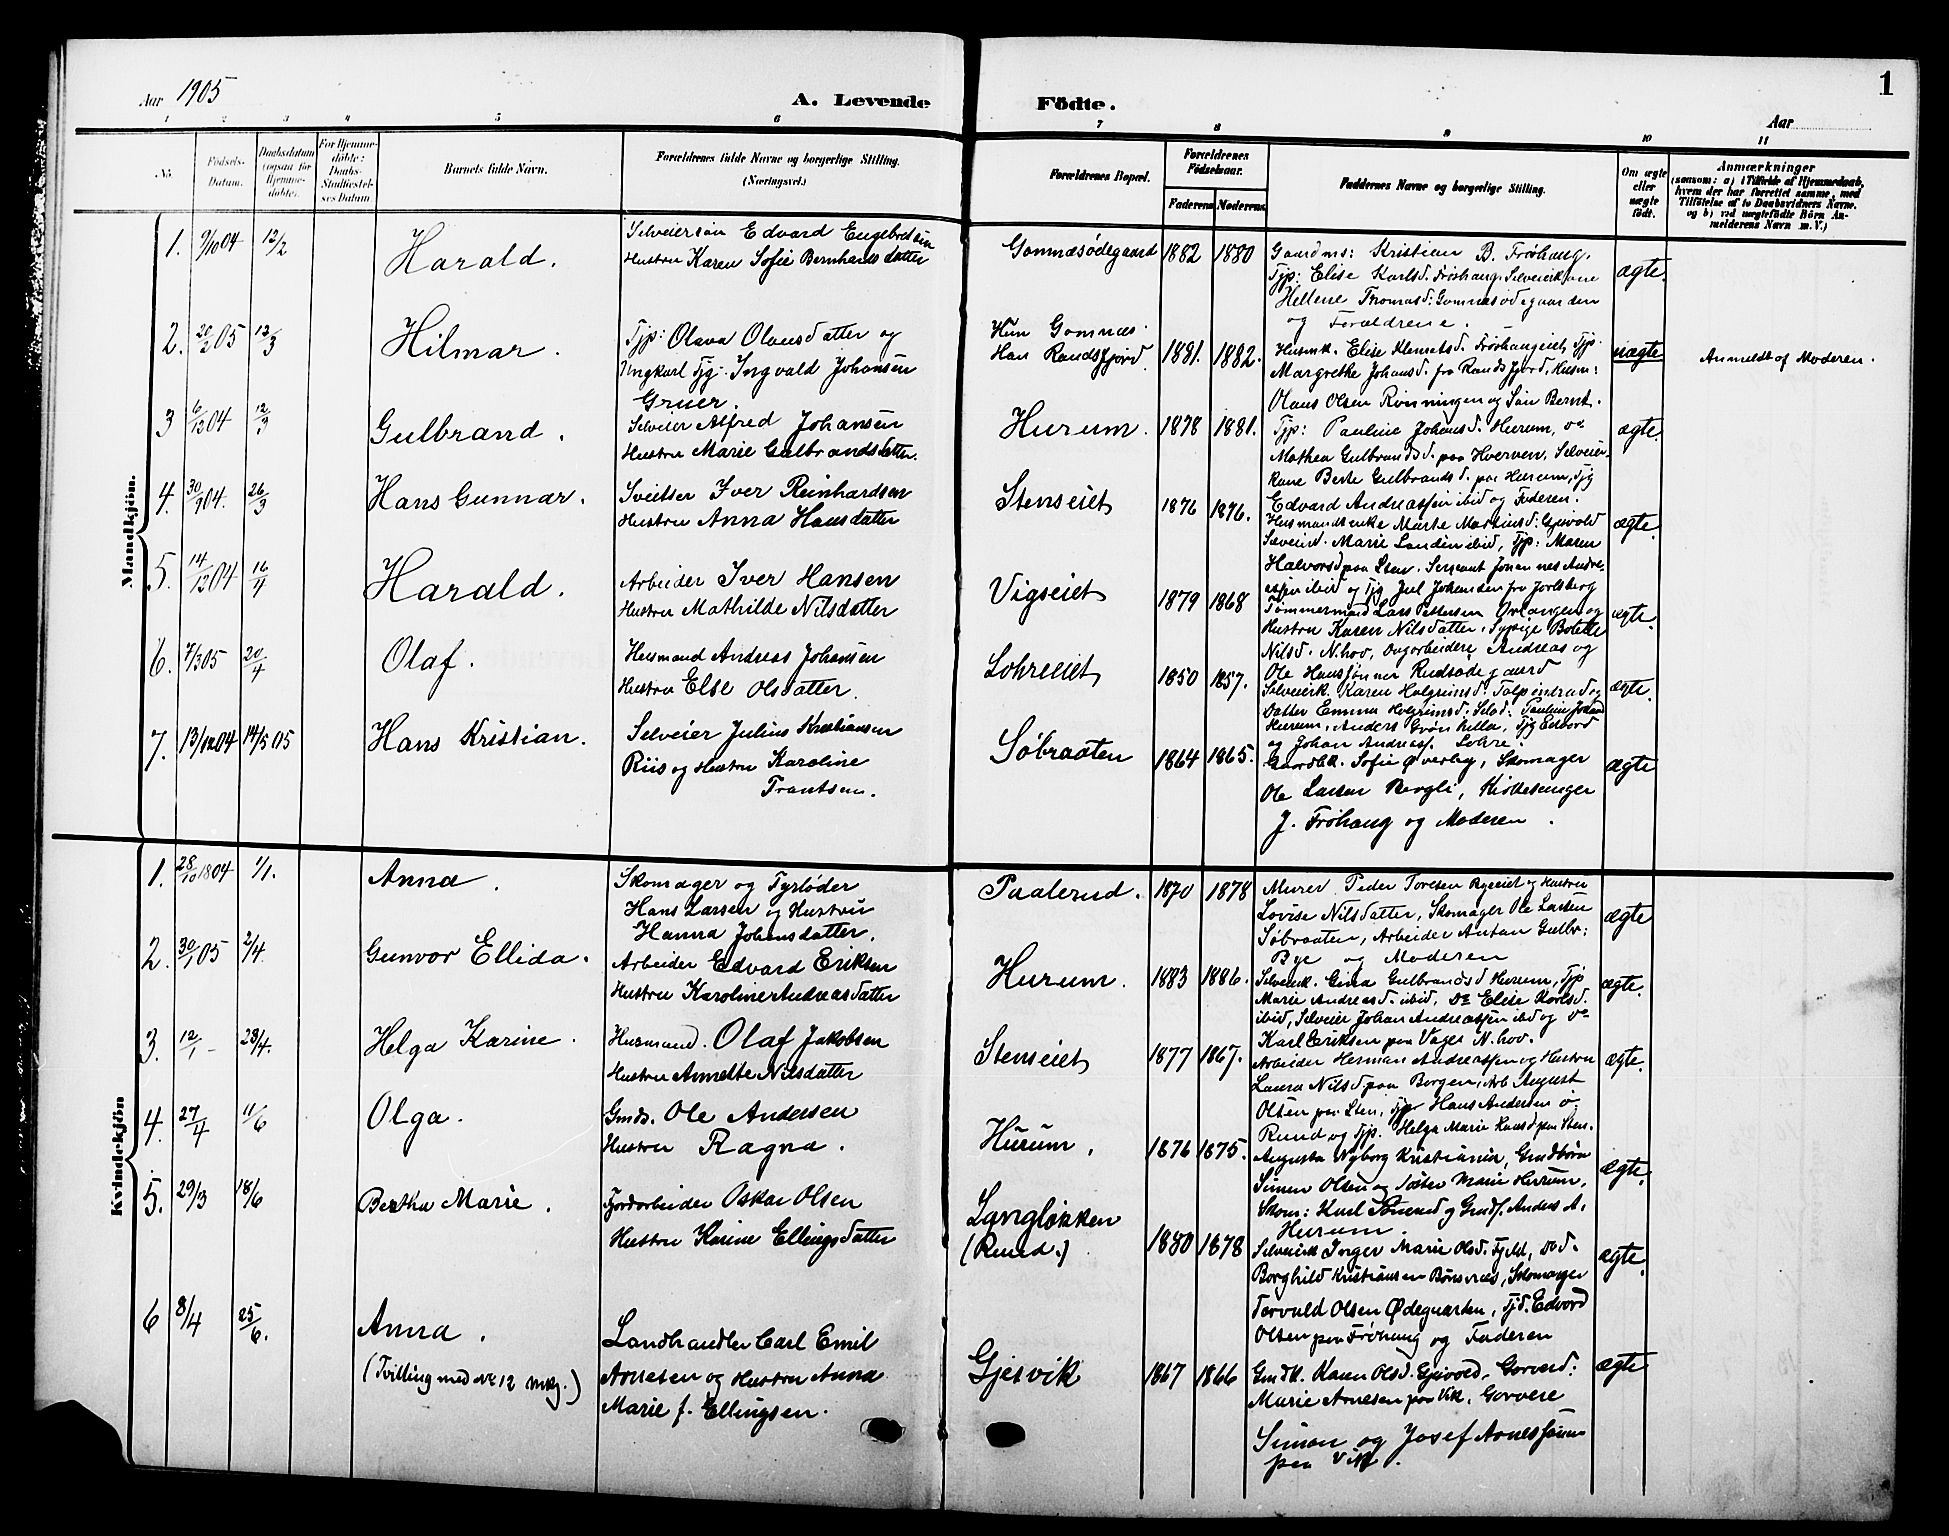 Aar 1905
A. Levende Födte.
Aar
1
1 2 3 4 5 6 7 8 9 10 11
No.
Fødsels-Datum.
Daabsdatum (ogsaa for Hjemmedøbte).
For Hjemmedøbte: Daabs-Stadfæstelses Datum.
Barnets fulde Navn.
Forældrenes fulde Navne og borgerlige Stilling.
(Næringsvei.)
Forældrenes Bopæl.
Forældrenes Fødselsaar.
Faderens Moderens
Faddernes Navne og borgerlige Stilling.
Om ægte eller uægte født.
Anmærkninger
(saasom: a) i Tilfælde af Hjemmedaab, hvem der har forrettet samme, med Tilføielse af to Daabsvidners Navne, og b) ved uægtefødte Börn Anmelderens Navn m. V.)
Mandkjön.
1. 9/10 04 12/2 Harald.
Selveiersön Edvard Engebretsen
Hustru Karen Sofie Bernhardsdatter
Gomnæsödegaard 1882 1880
Gaardms: Kristian B. Fröhaug,
Tjp: Elise Karlsd. Fröhaug, Selveierkone
Hellene Thomasd. Gomnæsödegaarden
og Forældrene.
ægte.
2. 20/2 05 12/3 Hilmar.
Tjp: Olava Olausdatter og
Ungkarl Tjg. Ingvald Johansen
Gruer.
Hun Gomnæs
Han Randsfjord. 1881. 1882.
Husmk. Elise Klemetsd. Fröhaugeiet, Tjp.
Margrethe Johansd. fra Randsfjord, Husm:
Olaus Olsen Rönningen og Sön Bernt.
uægte
Anmeldt af Moderen.
3 6/12 04 12/3 Gulbrand.
Selveier Alfred Johansen
Hustru Marie Gulbrandsdatter.
Hurum. 1878 1881.
Tjp: Pauline Johansd. Hurum, do
Mathea Gulbrandsd. paa Hverven, Selveier
kone Berte Gulbrandsd. paa Hurum, Tjg
Edvard Andreassen ibid og Faderen.
ægte.
4. 30/9 04. 26/3 Hans Gunnar.
Sveitser Iver Reinhardsen
Hustru Anna Hansdatter
Stenseiet 1876 1876.
Husmandsenke Marte Martinsd. Gjsvold
Selveierd. Marie Landén ibid, Tjp: Maren
Halvorsd paa Sten. Sersjant Johannes Andre-
assen ibid og Tjg Juel Johansen fra Jarlsberg
ægte.
5. 14/12 04 16/4 Harald.
Arbeider Iver Hansen
Hustru Mathilde Nilsdatter
Vigseiet 1879 1868
Tømmermand Lars Pettersen Ovlangen og
Hustru Karen Nilsdatter, Sypige Botelle
Nilsd. N.hov,  Andreas og
Ole Hanssønner Rudsødegaard
ægte.
6. 7/3 05 20/4 Olaf.
Husmand Andreas Johansen
Hustru Else Olsdatter.
Lohreeiet 1850 1857.
Selveierk. Karen Holgrimsd. og
Datter Emma Holgrimsd. Selvd: Pauline Johansd
Hurum, Anders Tjg Edvard
og Johan Andreass. Lohre.
ægte.
7. 13/12 04 14/5 05 Hans Kristian.
Selveier Julius Kristiansen
Riis og Hustru Karoline
Frantsen.
Søbraaten 1864 1865.
Gaardbk. Sofie Øverby, Skomager
Ole Larsen Bergli, Kirkesanger
J. Fröhaug og Moderen.
ægte
Kvindekjön
1. 28/10 1804 1/1. Anna.
Skomager og Fyrbøder
Hans Larsen og Hustru
Hanna Johansdatter.
Paalerud. 1870 1878
Murer Peder Toresen Byeeiet og Hustru
Lovise Nilsdatter, Skomager Ole Larsen
Søbraaten, Arbeider Anton Gulbr:
Bye og Moderen
ægte
2. 30/1 05 2/4 Gunvor Ellida.
Arbeider Edvard Eriksen
Hustru Karoline Andreasdatter
Hurum. 1883 1886.
Selveierk. Gina Gulbrandsd Hurum, Tjp
Marie Andreasd. ibid, Do Elise Karlsd.
ibid, Selveier Johan Andreassen ibid og do
Karl Eriksen paa Vager N. hov.
ægte.
3. 12/1 - 23/4. Helga Karine.
Husmand. Olaf Jakobsen
Hustru Annette Nilsdatter
Stenseiet 1877 1867.
Arbeider Herman Andreassen og Hustru
Laura Nilsd paa Borgen, Arb August
Olsen paa Sten, Tjgr Hans Andersen i
Rund og Tjp. Helga Marie Hansd paa Sten.
ægte.
4. 27/4 11/6 Olga.
Gmds. Ole Andersen
Hustru Ragna.
Hurum. 1876 1875.
Augusta Nyborg Kristiania, Gmdbörn
Simen Olsen og Söster Marie Hurum,
Skom: Karl og Gmdf. Anders A.
Hurum.
ægte.
5. 29/3 18/6 Bertha Marie.
Jordarbeider Oskar Olsen
Hustru Karine Ellingsdatter
Langløkken
(Rund.) 1880 1878
Selveierk Inger Marie Olsd. Fjeld, Dod.
Borghild Kristiansen Bönsnæs, Skomager
Torvald Olsen Ødegaarden, Tjd. Edvard
Olsen paa Fröhaug og Faderen
ægte.
6 8/4 25/6. Anna.
(Tvilling med No 12 mkj.)
Landhandler Carl Emil
Arnesen og Hustru Anna
Marie f. Ellingsen.
Gjesvik 1867 1866
Gmdk. Karen Olsd. Gjsvold,
Marie Arnesen paa Vik, Garvere
Simon og Josef Arnessönn
paa Vik.
ægte